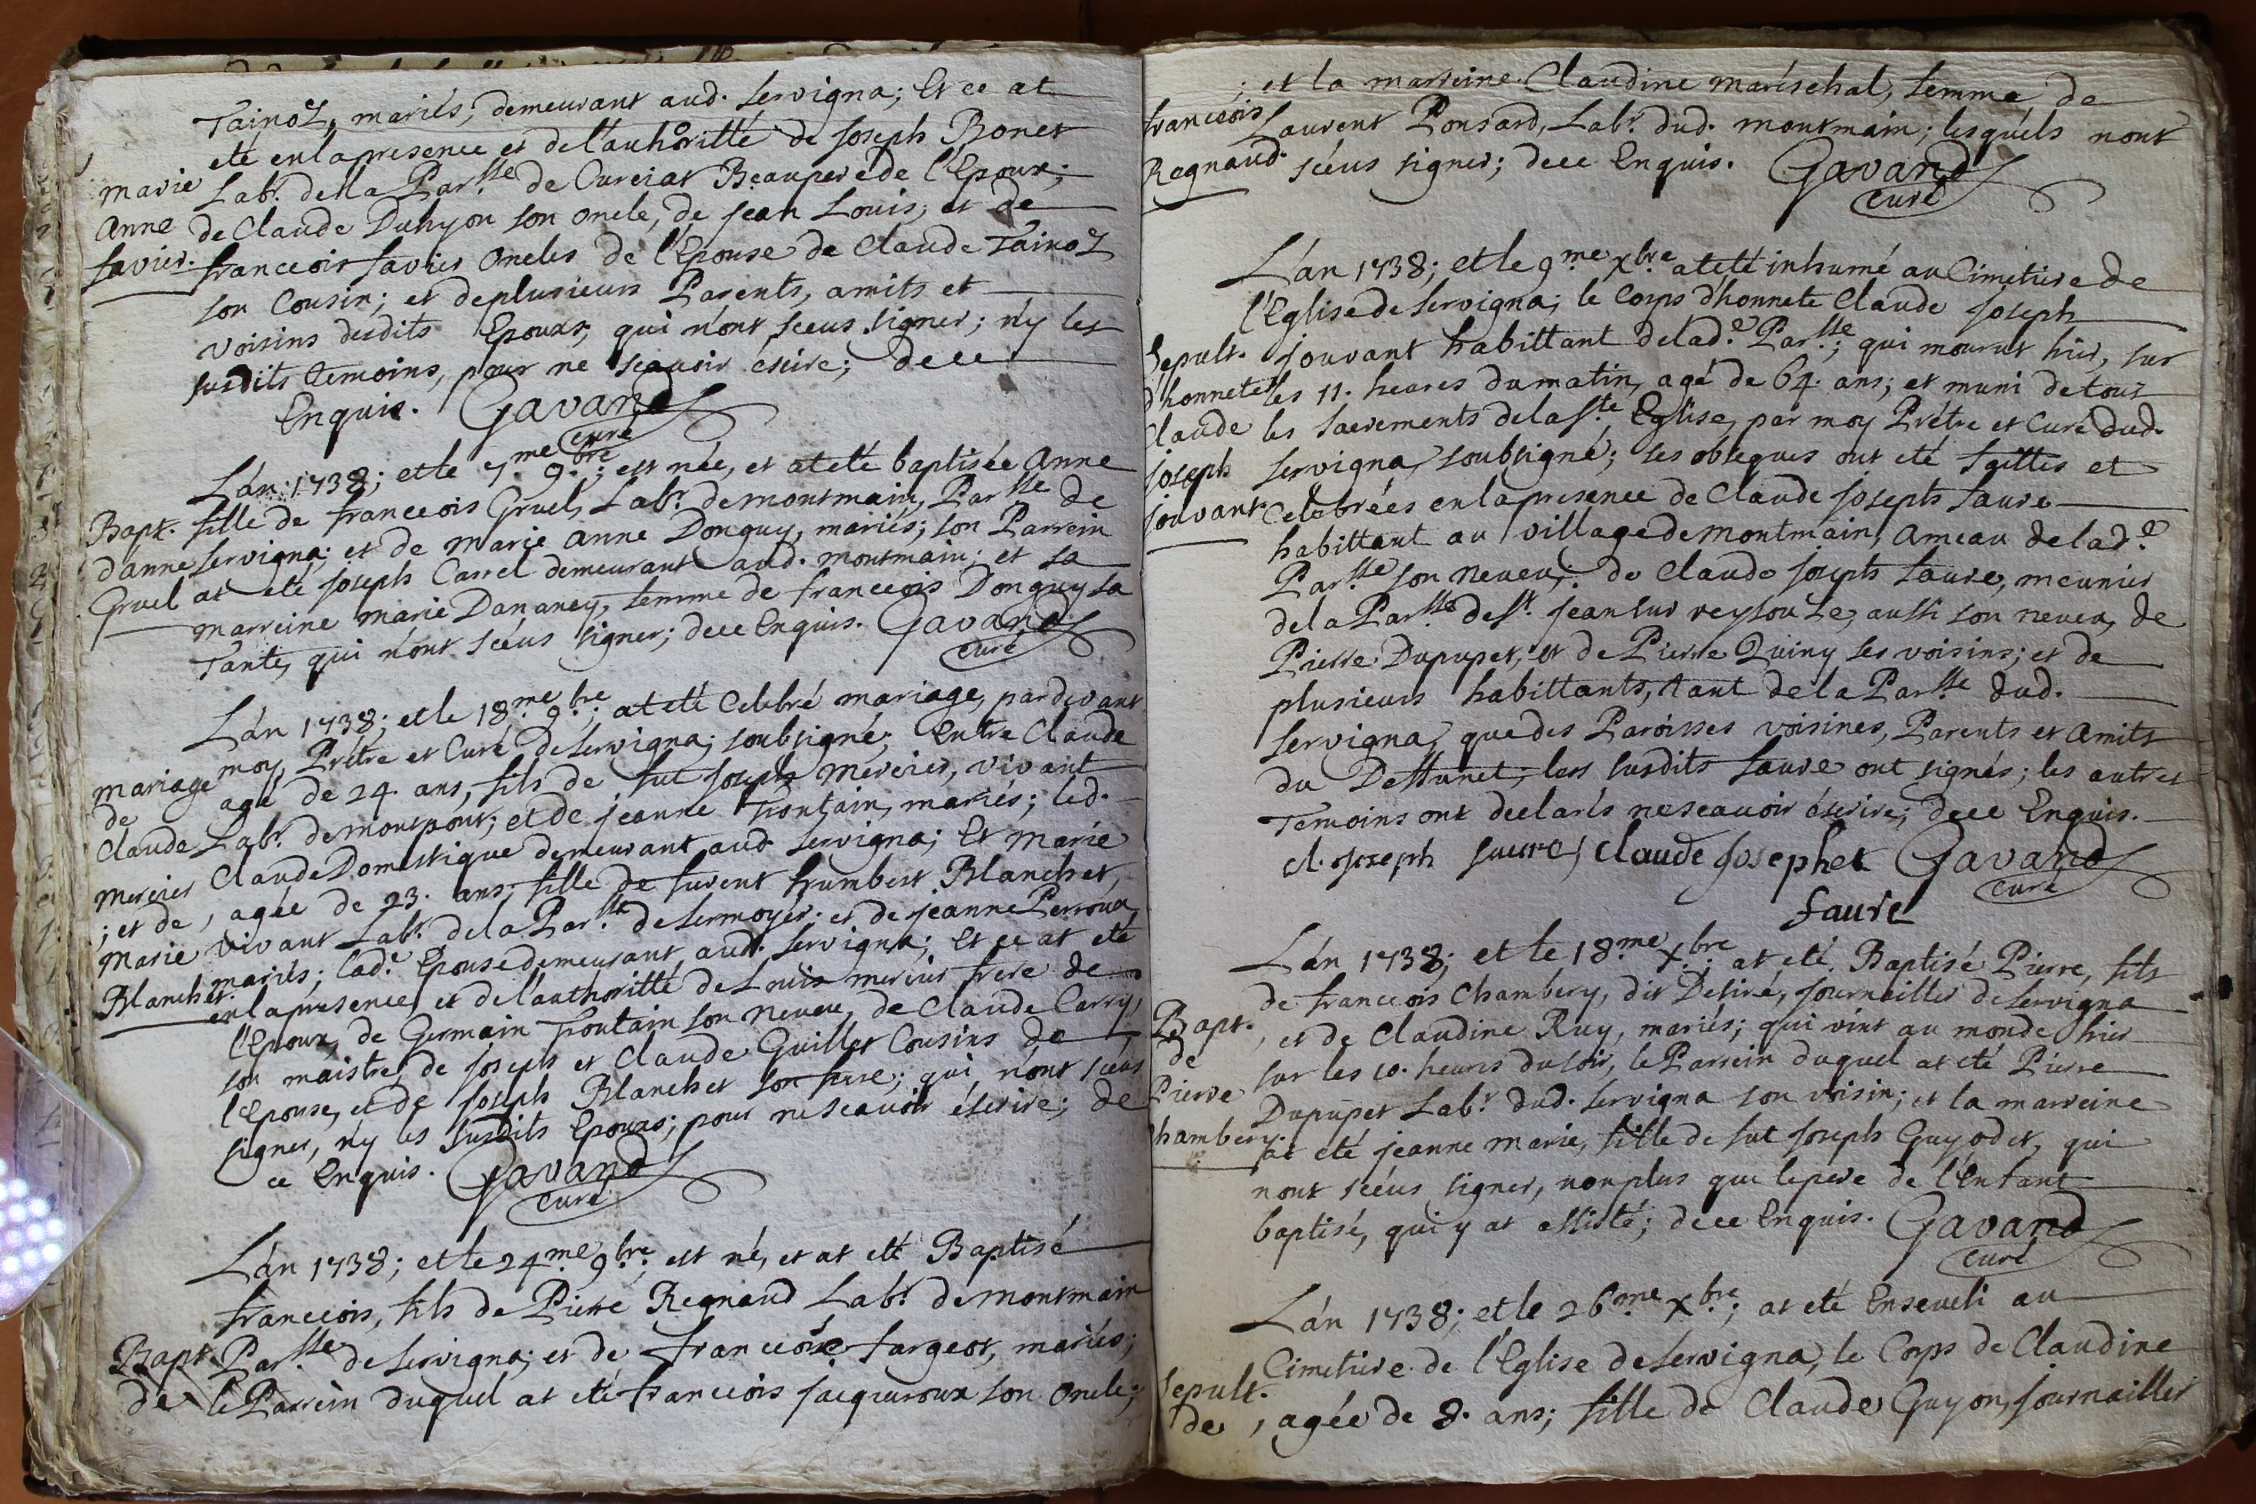 Tainoz, mariés, demeurant aud. Servigna; Et ce at
eté en la presence et de l'authoritté de Joseph Bonet
marie Lab.r de la Par.sse de Curciat Beaupere de l'Epoux;
Anne de Claude Duhyon son oncle, de jean Louis, et de
favier. franceois favier Oncles de l'Epouse de Claude Tainoz
son Cousin; et de plusieurs Parents, amits et
voisins desdits Epoux, qui n'ont sceus signer; n'y les
susdits temoins, pour ne sçavoir écrire; de ce
Enquis. Gavand
curé
L'an 1738; et le 7.me 9.bre; est née, et at eté baptisée Anne
Bapt. fille de franceois Gruel, Lab.r de montmain, Par.sse de
d'anne Servigna; et de marie Anne Donguy, mariés; son Parrein
Gruel at eté Joseph Carrel demeurant aud. montmain; et sa
marreine marie Dananey, femme de francois Donguy sa
Tante, qui n'ont scéus signer; de ce Enquis. Gavand
curé
L'an 1738; et le 18.me 9.bre; at eté Celebré mariage, pardevant
moy, Prétre et Curé de Servigna; soubsigné; Entre Claude
mariage agé de 24. ans, fils de fut Joseph mercier, vivant
de
Claude Lab.r de montpont; et de jeanne Trontain, mariés; led.
mercier Claude Domestique demeurant aud. Servigna; Et marie
; et de , agée de 23. ans; fille de furent humbert Blanchet,
marie vivant Lab.r de la Par.sse de Sermoyer; et de jeanne Perroux,
Blanchet. mariés; lad.e Epouse demeurant aud. Servigna; Et ce at eté
en la presence, et de l'authoritté de Louis mercier frere de
l'Epoux, de Germain Trontain son neveu, de Claude Carry,
son maistre, de Joseph et Claude Guillet Cousins de
l'Epouse, et de Joseph Blanchet son frere; qui n'ont sceus
signer, n'y les susdits Epoux; pour ne sçavoir écrire; de
ce Enquis. Gavand
curé
L'an 1738; et le 24.me 9.bre; est né, et at eté Baptisé
francois, fils de Pierre Regnaud Lab.r de montmain
Bapt. Par.sse de Servigna; et de francoise fargeot, mariés;
de le Parrein duquel at eté francois jacqueroux son oncle;
; et la marreine Claudine maréschal, femme de
francois Laurent Ponsard, Lab.r dud. montmain; lesquels n'ont
Regnaud. scéus signer; de ce Enquis. Gavand
curé
L'an 1738; et le 9.me X.bre at eté inhumé au Cimetiere de
l'Eglise de Servigna; le Corps d'honnete Claude Joseph
Sepult. jouvant habittant de lad.e Par.sse; qui mourut hier, sur
d'honnete les 11. heures du matin, agé de 64. ans; et muni de touz
Claude les sacrements de la S.te Eglise, par moy Prétre et Curé dud.
joseph Servigna, soubsigné; ses obseques ont eté faittes et
jouvant. Celebrées en la presence de Claude Joseph faure
habittant au village de montmain, ameau de lad.e
Par.sse son neveu; de Claude Joseph faure, meunier
de la Par.sse de S.t jean sur reysouze, aussi son neveu, de
Pierre Dupupet, et de Pierre Quiny ses voisins; et de
plusieurs habittants, tant de la Par.sse dud.
Servigna, que des Paroisses voisines, Parents et amits
du Deffunct; les susdits faure ont signés; les autres
Temoins ont declarés ne scavoir écrire; de ce Enquis.
cl. joseph faure claude Josephet Gavand
curé
faure
L'an 1738; et le 18.me X.bre; at eté Baptisé Pierre, fils
de francois Chambery, dit Desiré, journailler de Servigna
Bapt. , et de Claudine Ruy, mariés; qui vint au monde hier
de sur les 10. heures du soir, le Parrein duquel at eté Pierre
Pierre Dupupet Lab.r dud. Servigna son voisin; et la marreine
Chambery. at eté jeanne marie, fille de fut Joseph Guyodet, qui
n'ont scéus signer, non plus que le pere de l'Enfant
baptisé, qui y at assisté; de ce Enquis. Gavand
curé
L'an 1738; et le 26.me X.bre; at eté Enseveli au
Cimetiere de l'Eglise de Servigna, le Corps de Claudine
Sepult.
de , agée de 8. ans; fille de Claude Guyon, journailler